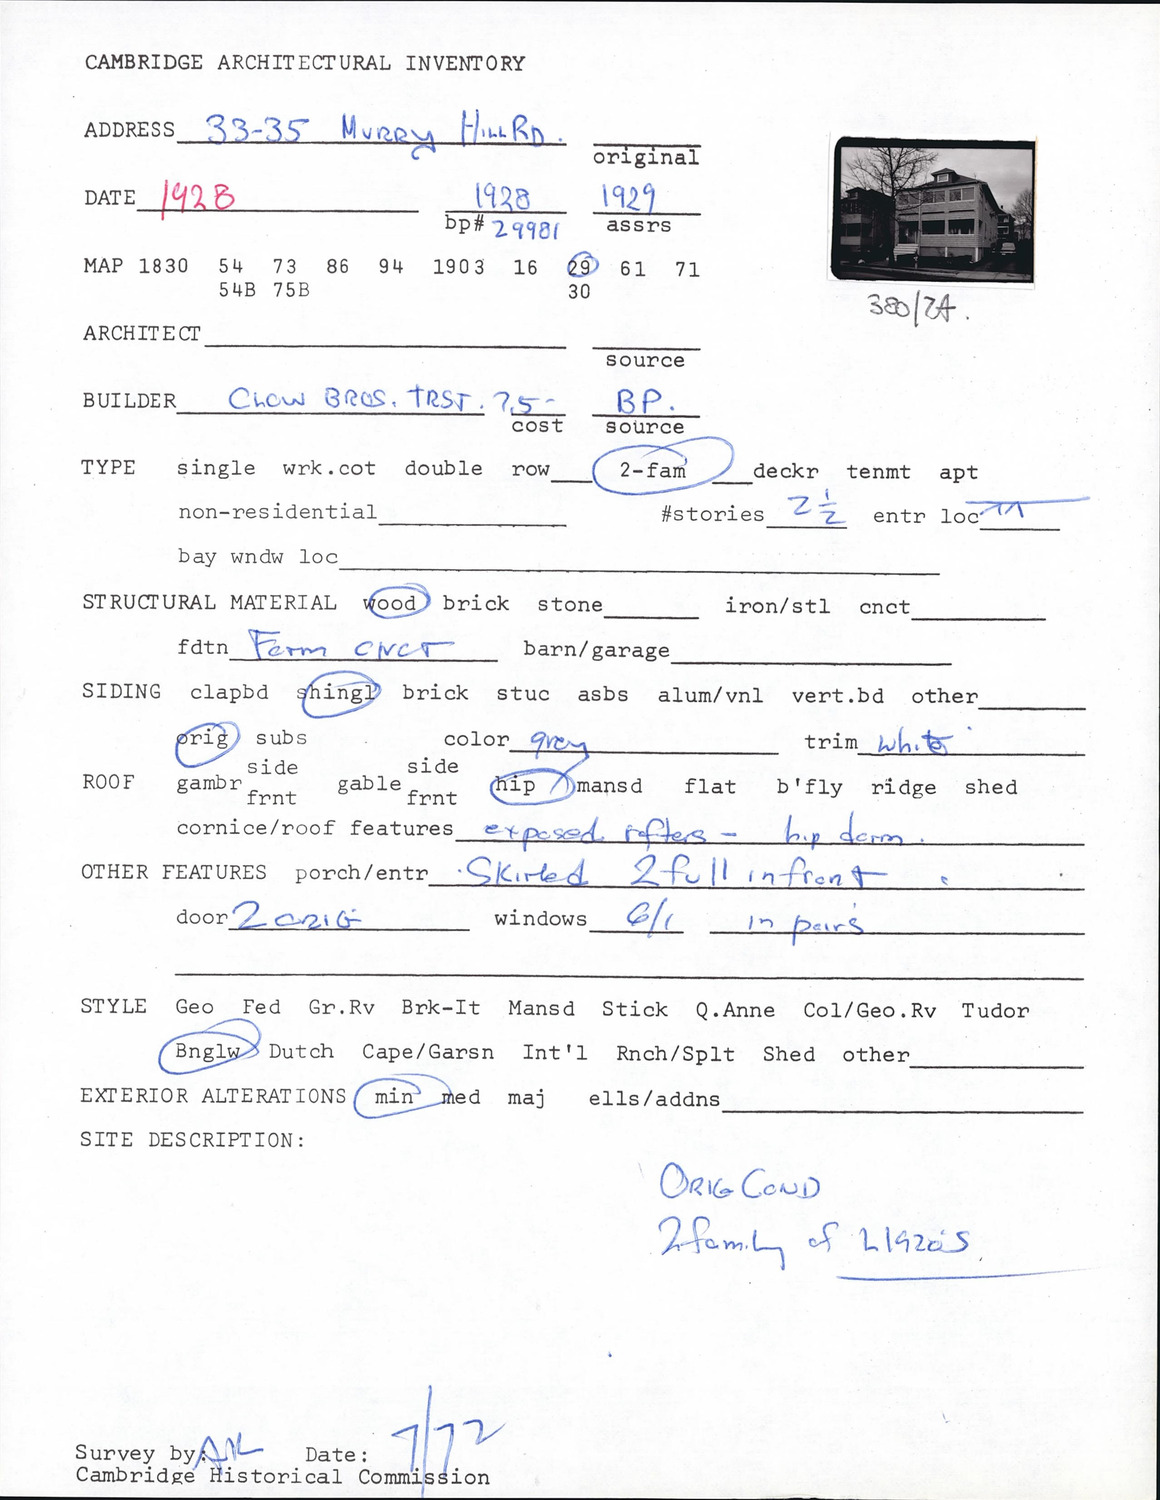 CAMBRIDGE ARCHITECTURAL INVENTORY
ADDRESS 33-35 MURRY HILL RD. original
DATE 1928 1928 1929
bp# 29981 assrs
MAP 1830 54 73 86 94 1903 16 29 61 71
54B 75B 30
380/2A.
ARCHITECT
source
BUILDER CHOW BROS. TRST. 7,5- BP.
cost source
TYPE single wrk.cot double row 2-fam deckr tenmt apt
non-residential #stories 2 1/2 entr loc
bay wndw loc
STRUCTURAL MATERIAL wood brick stone iron/stl cnct
fdtn Form CNCT barn/garage
SIDING clapbd shingl brick stuc asbs alum/vnl vert.bd other
orig subs color grey trim white
ROOF gambr side frnt gable side frnt hip mansd flat b'fly ridge shed
cornice/roof features exposed rafters - hip dorm.
OTHER FEATURES porch/entr Skirted 2 full in front
door 2 ORIG windows 6/1 in pairs
STYLE Geo Fed Gr.Rv Brk-It Mansd Stick Q.Anne Col/Geo.Rv Tudor
Bnglw Dutch Cape/Garsn Int'l Rnch/Splt Shed other
EXTERIOR ALTERATIONS min med maj ells/addns
SITE DESCRIPTION:
ORIG COND
2 family of L1920's
Survey by: Date: 7/72
Cambridge Historical Commission